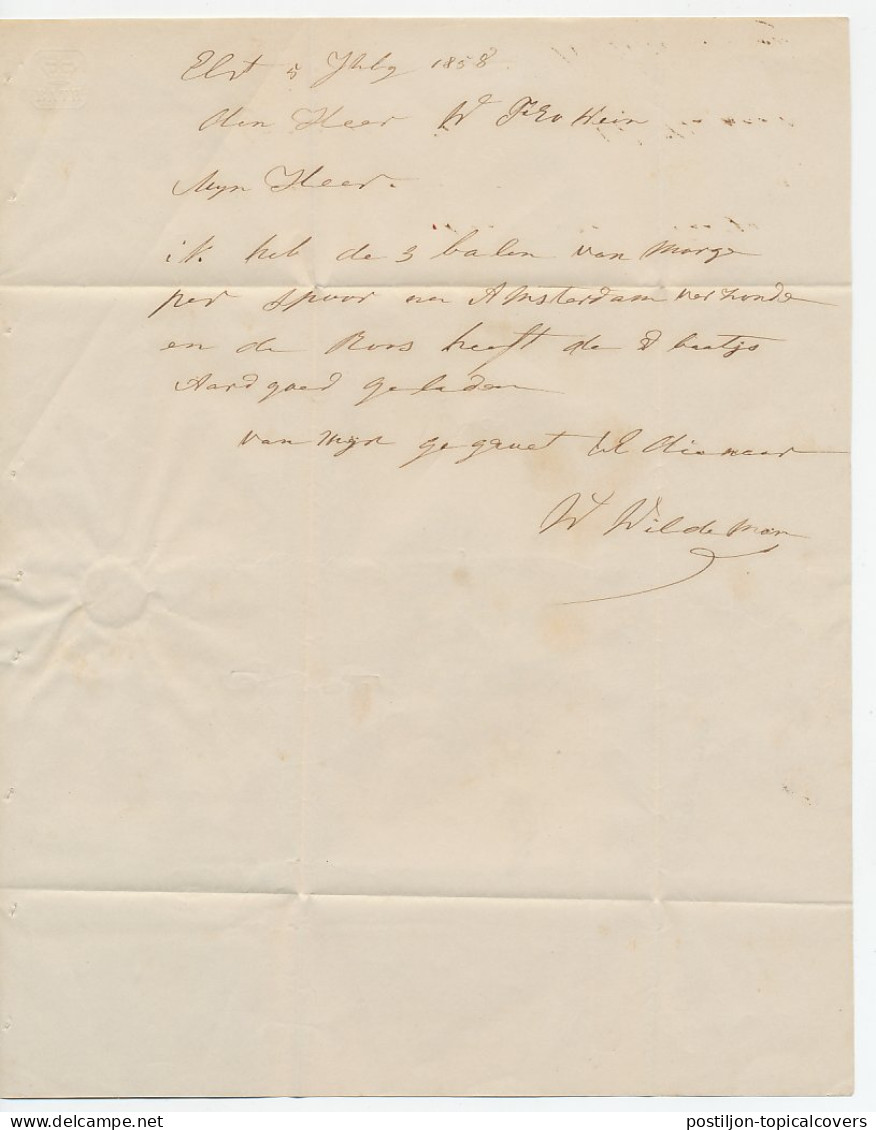 Elst 5 July 1858
den Heer W Frowein
Myn Heer.
ik heb de 3 balen van morge
per spoor na Amsterdam verzonde
en de Roos heeft de 8 baatjs
Aardgoed geladen
van mijn gegroet UE dienaar
W Wildeman
postiljon-topicalcovers